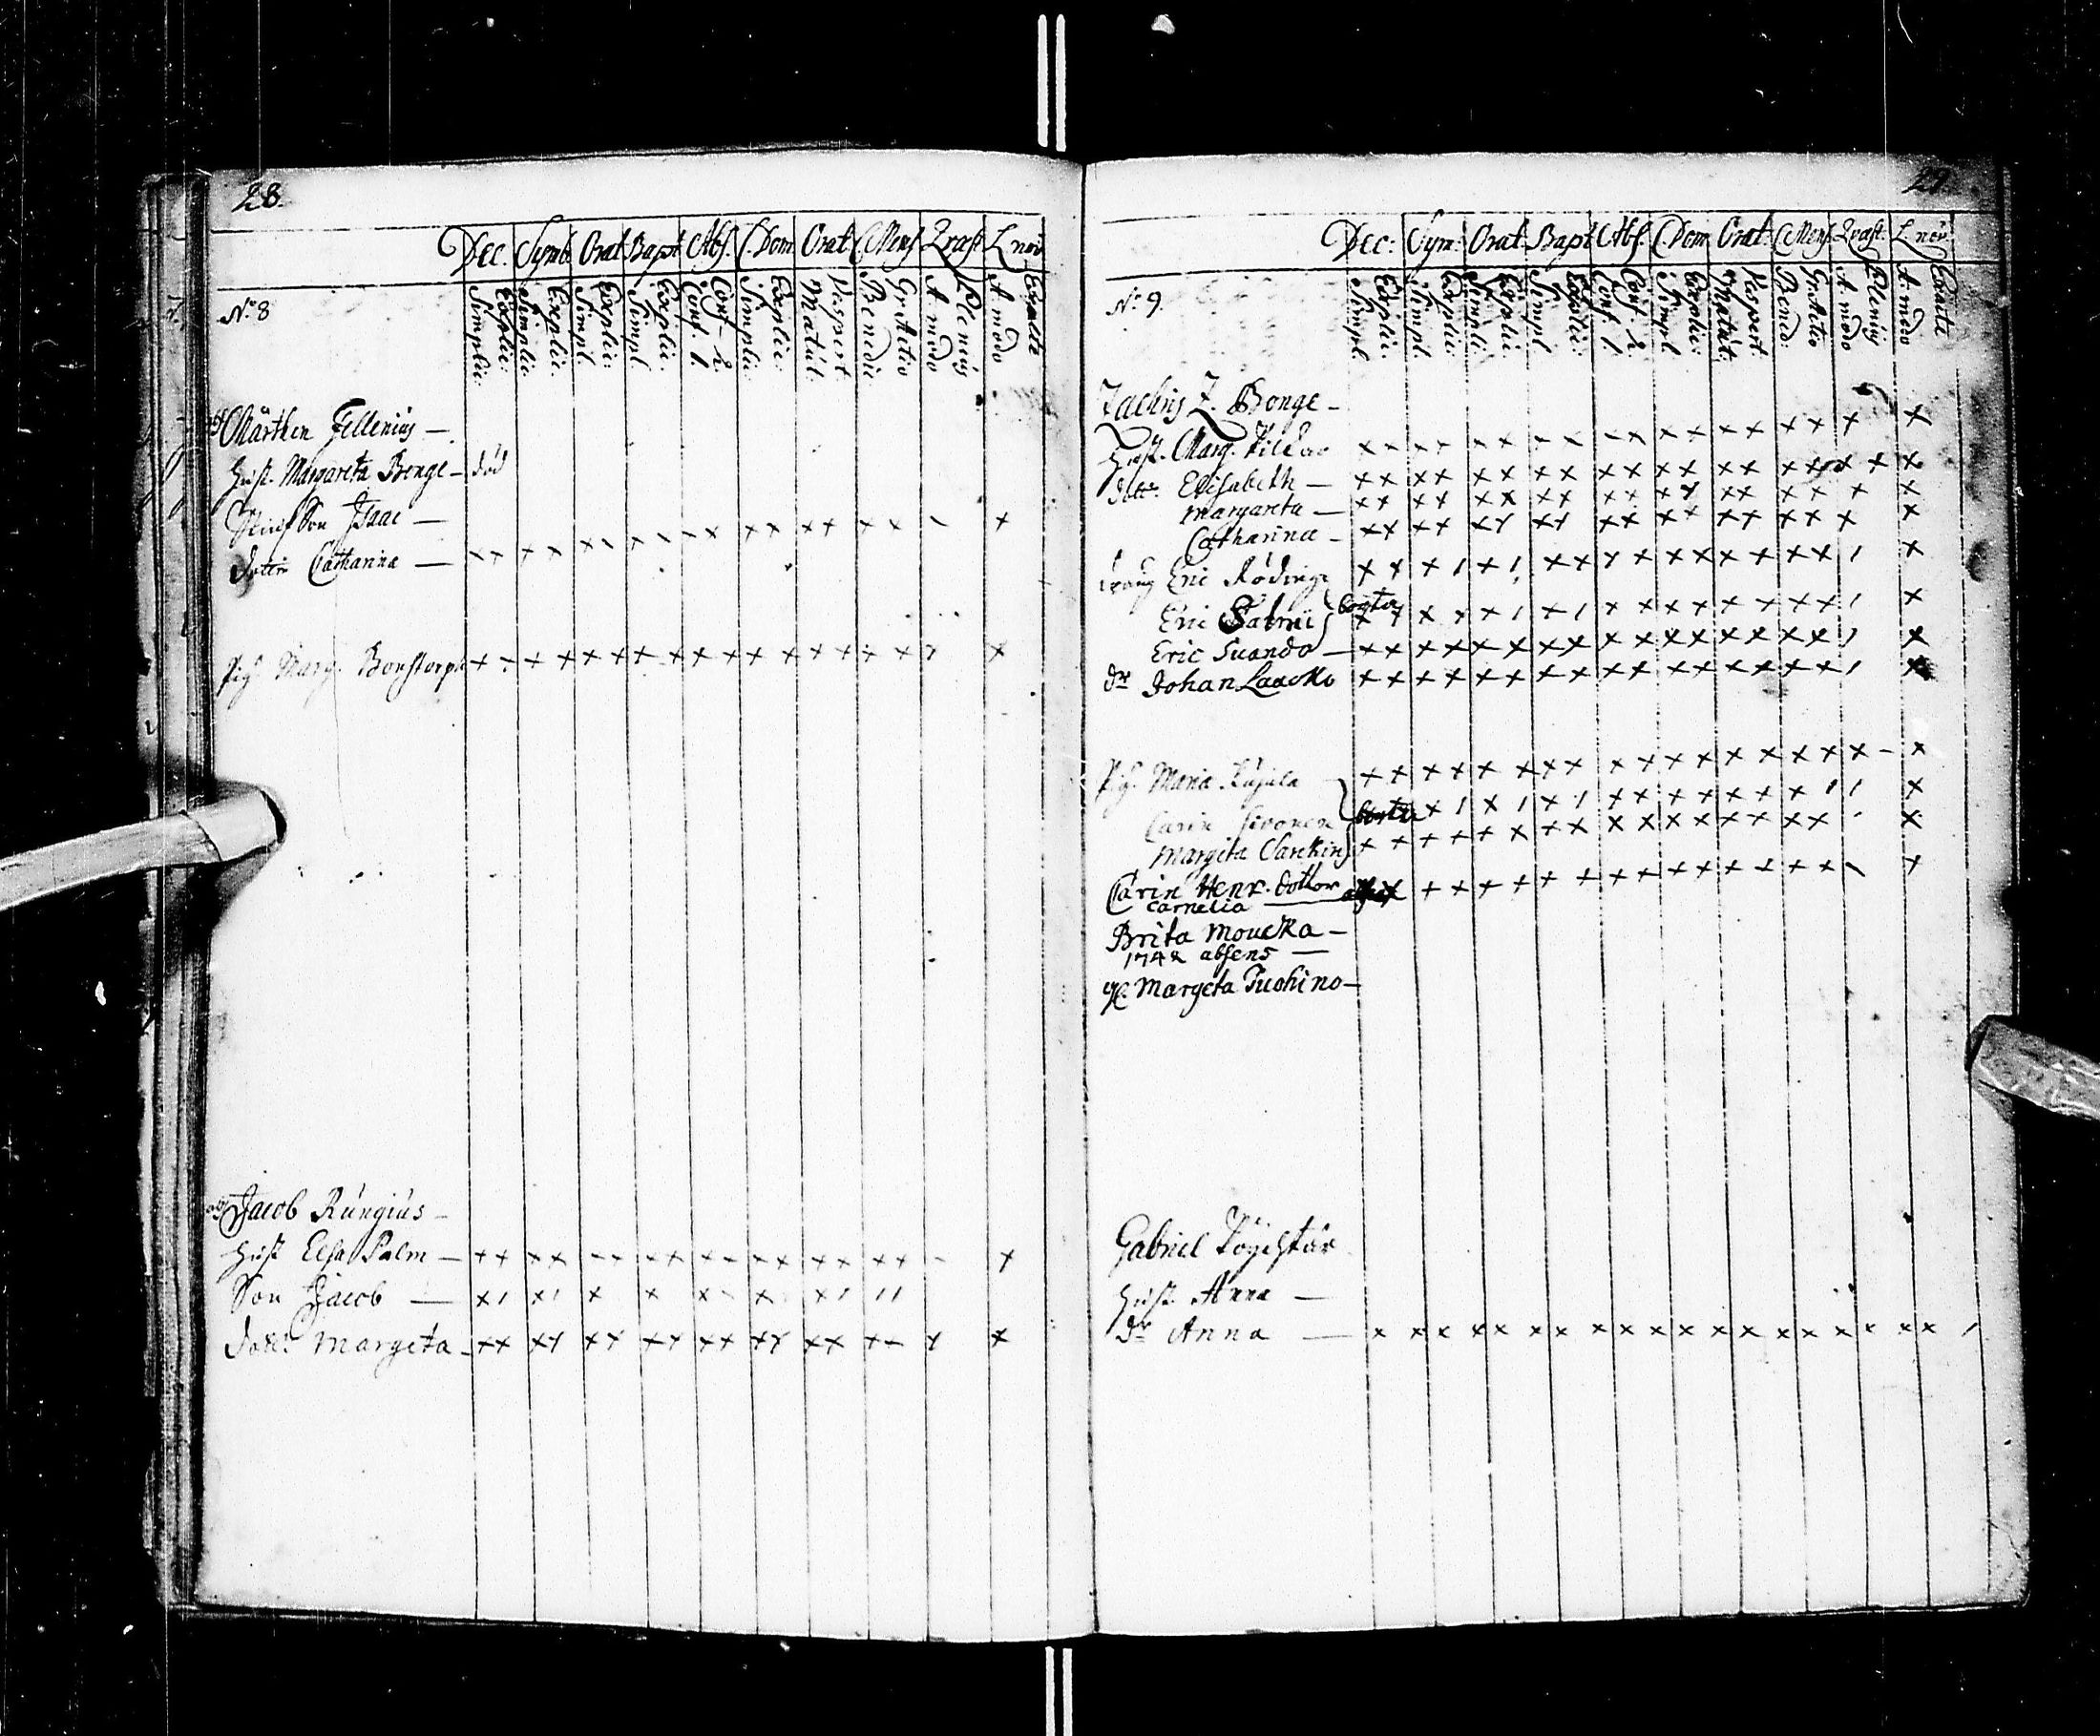 28.
Dec. Symb. Orat. Bapt. Abs. C. Dom. Orat. C. Mens. Quæst. L. nov.
No 8
Simplic: Explic: Simplic: Explic: Simpl. Explic: Simpl. Explic. Conf. 1. Conf. 2. Simplic: Explic: Matut: Vespert: Benedic Gr: Actio A. modo Plenius A. modo Exacte
Mårthen Fellenius —
Hust. Margareta Bonge — död
Son Isaac —
Dotter Catharina —
Pig. Marg. Bonstorph
Jacob Rungius —
Hust Elsa Palm —
Son Jacob —
Dott: Margeta —
29.
Dec: Sym: Orat. Bapt. Abs. C. Dom. Orat: C. Mens. Quæst: L. nov.
No 9.
Simpl. Explic: Simpl. Explic: Simpli: Explic: Simpl Explic: Conf. 1. Conf. 2. Simpl Explic: Matut: Vespert: Bened: Gr: Actio A. modo Plenius A. modo Exacte
Zachris Z. Bonge —
Hust. Marg.
dott: Elisabeth —
Margareta —
Catharina —
Eric Röding
Eric borta
Eric Suando —
dr Johan Laacko
Pig. Maria
Carin borta
Margeta
Carin Henr. dotter
Carnelia
Brita Moucka —
1742 absens —
Margeta Tuohino —
Gabriel
Hust. Anna —
dr Anna —